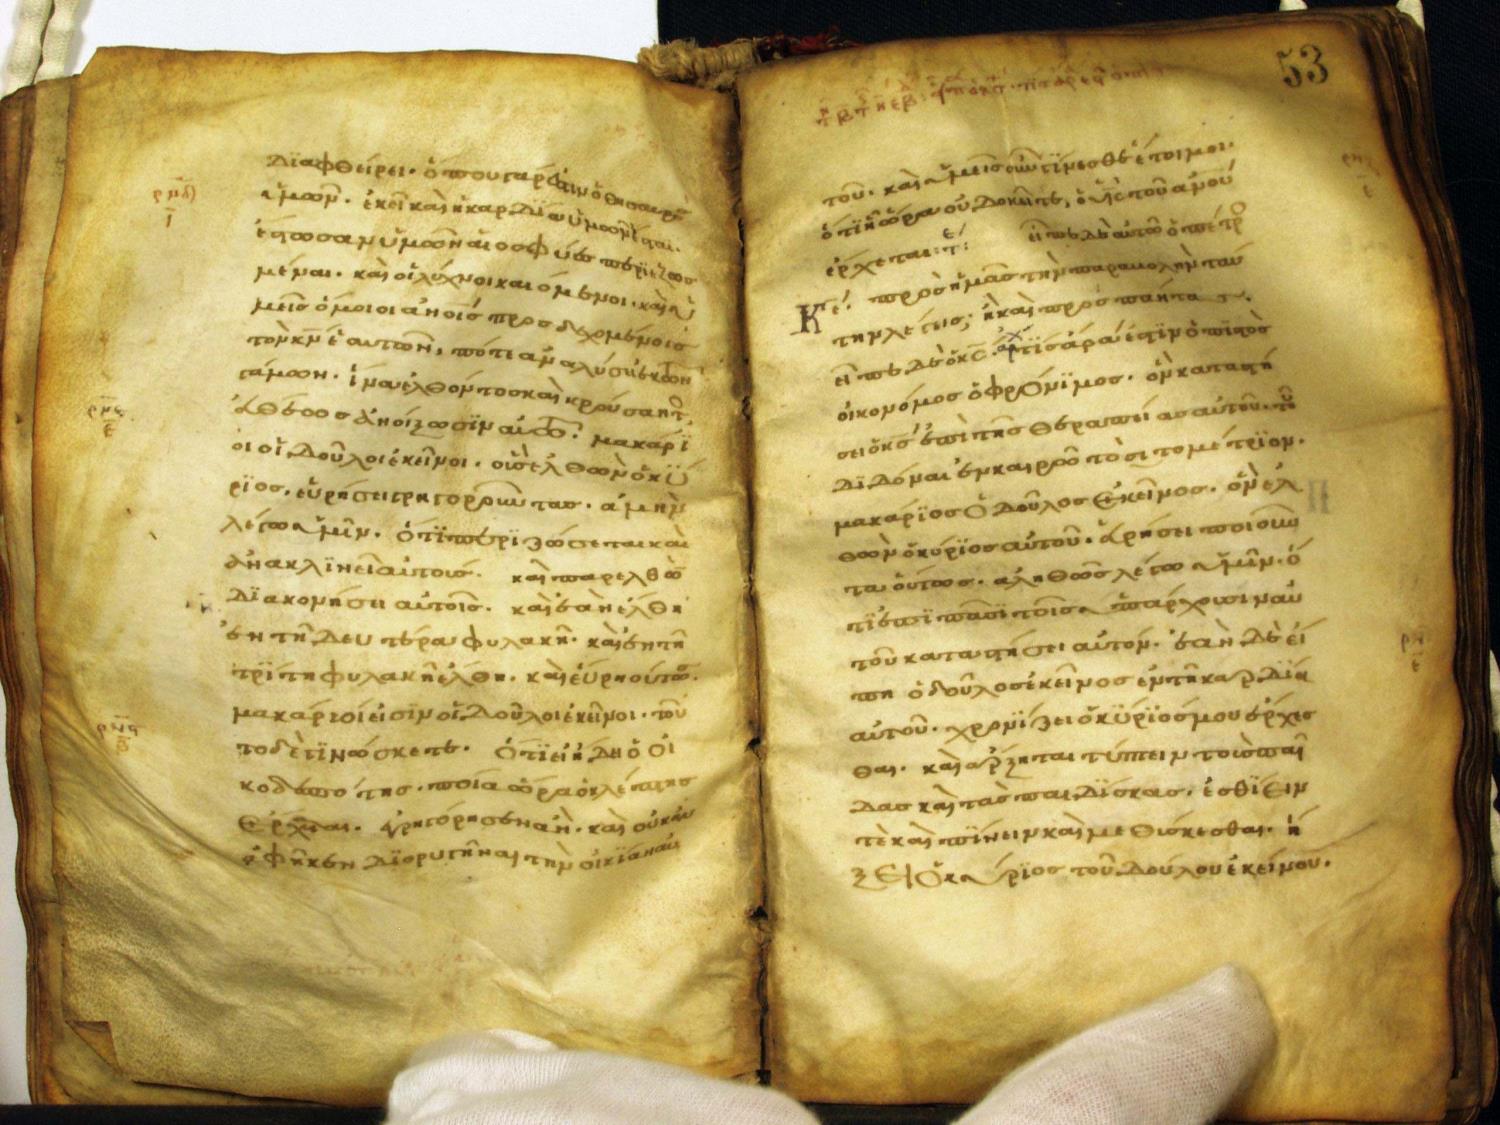 διαφθείρει· ὅπου γάρ ἐστιν ὁ θησαυρὸς
ὑμῶν· ἐκεῖ καὶ ἡ καρδία ὑμῶν ἔσται·
ἔστωσαν ὑμῶν αἱ ὀσφύες περιεζωσ
μέναι· καὶ οἱ λύχνοι καιόμενοι· καὶ ὑ
μεῖς ὅμοιοι ἀνοις προσδεχομένοις
τὸν κν ἑαυτῶν, πότε ἀναλύσει ἐκ τῶν
γάμων· ἵνα ἐλθόντος καὶ κρούσαντ
εὐθέως ἀνοίξωσιν αὐτῶ· μακάρι
οι οἱ δοῦλοι ἐκεῖνοι· οὓς ἐλθὼν ὁ κύ
ριος, εὑρήσει γρηγοροῦντας· ἀμὴν
λέγω ὑμῖν· ὅτι περιζώσεται καὶ
ἀνακλινεῖ αὐτούς· καὶ παρελθὼν
διακονήσει αὐτοῖς· καὶ ἐὰν ἔλθη
ἐν τῆ δευτέρα φυλακῆ· καὶ ἐν τῆ
τρίτη φυλακῆ ἔλθη· καὶ εὕρη οὕτω·
μακάριοί εἰσιν οἱ δοῦλοι ἐκεῖνοι· τοῦ
το δὲ γινώσκετε· ὅτι εἰ ἤδη ὁ οἰ
κοδεσπότης· ποία ὥρα ὁ κλέπτης
ἔρχεται· ἐγρηγόρησεν ἂν· καὶ οὐκ ἂν
ἀφῆκεν διορυγῆναι τὴν οἰκίαν αὐ
53
τοῦ· καὶ ὑμεῖς οὖν γίνεσθε ἕτοιμοι·
ὅτι ἧ ὥρα οὐ δοκεῖτε, ὁ υἱς τοῦ ανου
ἔρχεται· εἶπε δὲ αὐτῶ ὁ πέτρος
Κε· πρὸς ἡμᾶς τὴν παραβολὴν ταύ
την λέγεις; ἢ καὶ πρὸς πάντας·
εἶπε δὲ ὁ κς· τίς ἄρα ἐστὶν ὁ πιστὸς
οἰκονόμος ὁ φρόνιμος· ὃν καταστή
σει ὁ κς ἐπὶ τῆς θεραπείας αὐτοῦ· τοῦ
διδόναι ἐν καιρῶ τὸ σιτομέτριον·
μακάριος ὁ δοῦλος ἐκεῖνος· ὃν ἐλ
θὼν ὁ κύριος αὐτοῦ· εὑρήσει ποιοῦν
τα οὕτως· ἀληθῶς λέγω ὑμῖν· ὅ
τι ἐπὶ πᾶσι τοῖς ὑπάρχουσιν αὐ
τοῦ καταστήσει αὐτόν· ἐὰν δὲ εἴ
πη ὁ δοῦλος ἐκεῖνος ἐν τῆ καρδία
αὐτοῦ· χρονίζει ὁ κύριός μου ἔρχεσ
θαι· καὶ ἄρξηται τύπτειν τοὺς παῖ
δας καὶ τὰς παιδίσκας· ἐσθίειν
τὲ καὶ πίνειν καὶ μεθύσκεσθαι· ἥ
ξει ὁ κύριος τοῦ δούλου ἐκείνου·